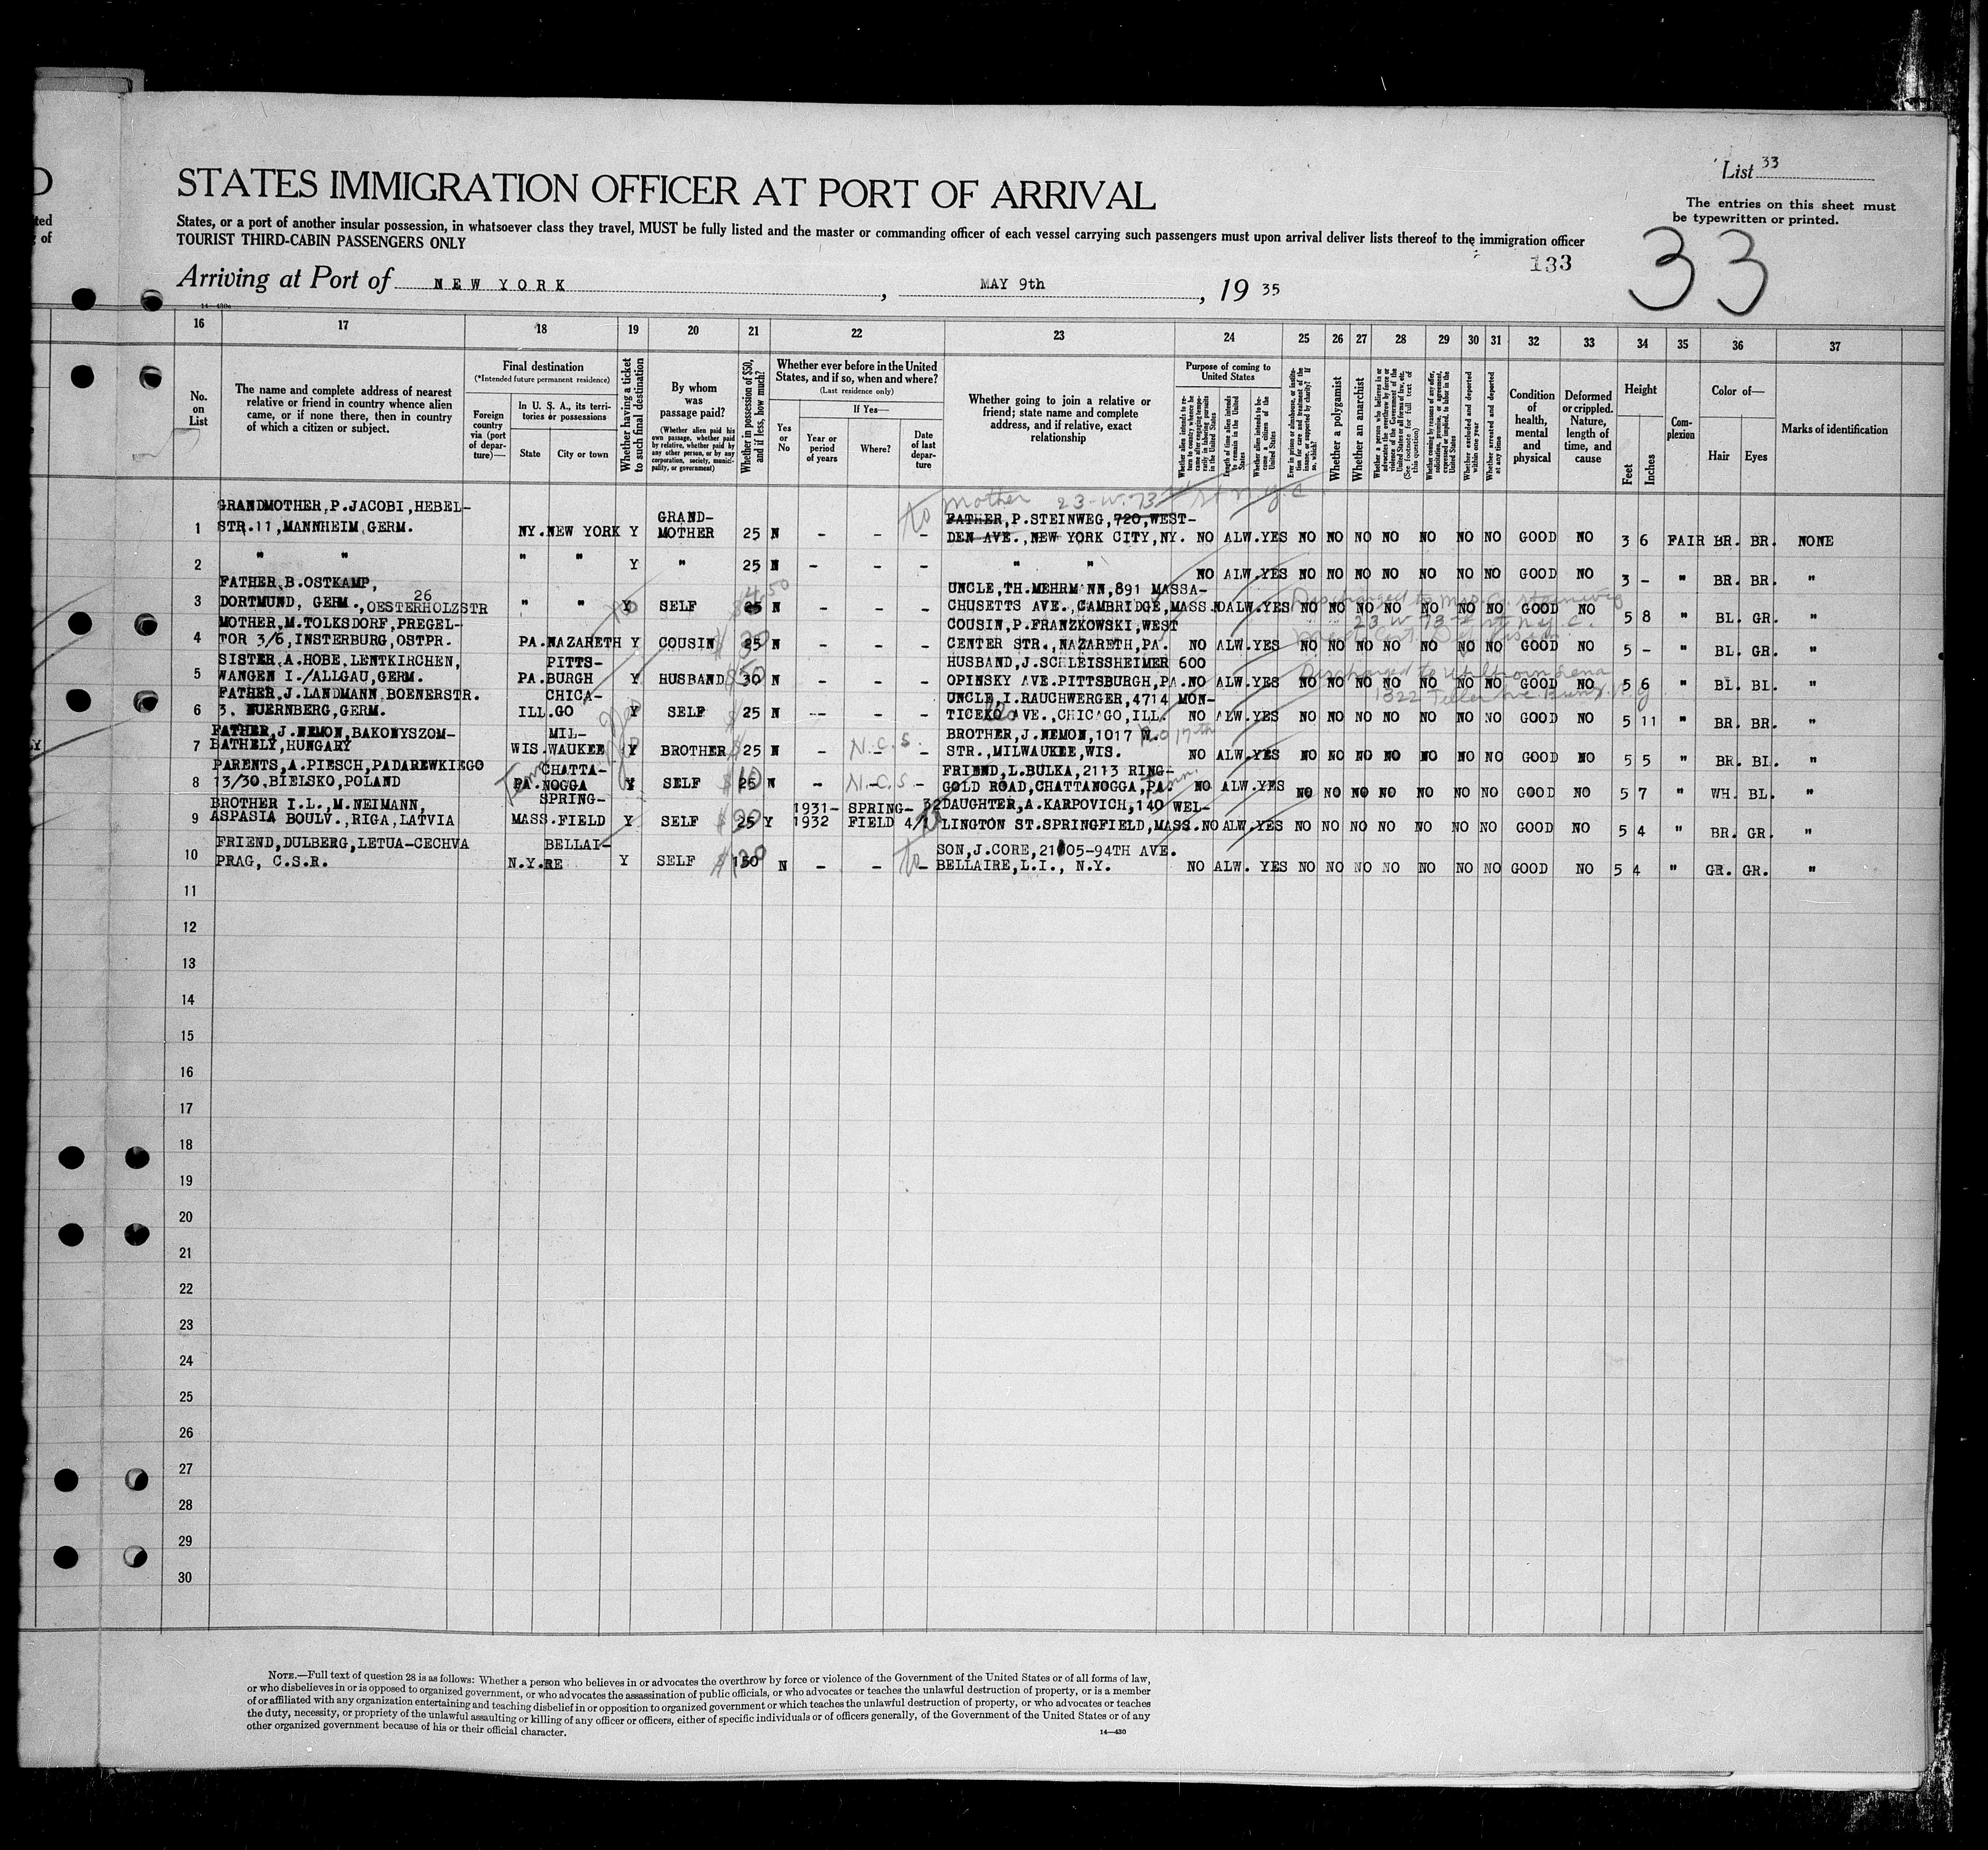 List 33
STATES IMMIGRATION OFFICER AT PORT OF ARRIVAL
The entries on this sheet must
be typewritten or printed.
States, or a port of another insular possession, in whatsoever class they travel, MUST be fully listed and the master or commanding officer of each vessel carrying such passengers must upon arrival deliver lists thereof to the immigration officer
TOURIST THIRD-CABIN PASSENGERS ONLY
133
33
Arriving at Port of NEW YORK, MAY 9th, 19 35
16 17 18 19 20 21 22 23 24 25 26 27 28 29 30 31 32 33 34 35 36 37
No. on List
The name and complete address of nearest relative or friend in country whence alien came, or if none there, then in country of which a citizen or subject.
Final destination
(*Intended future permanent residence)
Foreign country via (port of departure)—
In U. S. A., its territories or possessions
State
City or town
Whether having a ticket to such final destination
By whom was passage paid?
(Whether alien paid his own passage, whether paid by relative, whether paid by any other person, or by any corporation, society, municipality, or government)
Whether in possession of $50, and if less, how much?
Whether ever before in the United States, and if so, when and where?
(Last residence only)
Yes or No
If Yes—
Year or period of years
Where?
Date of last departure
Whether going to join a relative or friend; state name and complete address, and if relative, exact relationship
Purpose of coming to United States
Whether a polygamist
Whether an anarchist
Condition of health, mental and physical
Deformed or crippled. Nature, length of time, and cause
Height
Feet
Inches
Complexion
Color of—
Hair
Eyes
Marks of identification
to mother 23-W. 73rd St N.Y.C.
1 GRANDMOTHER,P.JACOBI,HEBEL-
STR.11,MANNHEIM,GERM. NY.NEW YORK Y GRAND-MOTHER 25 N - - - FATHER,P.STEINWEG,720,WEST-
DEN AVE.,NEW YORK CITY,NY. NO ALW.YES NO NO NO NO NO NO NO GOOD NO 3 6 FAIR BR. BR. NONE
2 " " " " Y " 25 N - - - " " NO ALW.YES NO NO NO NO NO NO NO GOOD NO 3 - " BR. BR. "
3 FATHER,B.OSTKAMP,
DORTMUND, GERM.,OESTERHOLZSTR 26 " " Y SELF 25 N - - - UNCLE,TH.MEHRMANN,891 MASSA-
CHUSETTS AVE.,CAMBRIDGE,MASS.NO ALW.YES NO NO NO NO NO NO NO GOOD NO 5 8 " BL. GR. "
4 MOTHER,M.TOLKSDORF,PREGEL-
TOR 3/6,INSTERBURG,OSTPR. PA.NAZARETH Y COUSIN 25 N - - - COUSIN,P.FRANZKOWSKI,WEST
CENTER STR.,NAZARETH,PA. NO ALW.YES NO NO NO NO NO NO NO GOOD NO 5 - " BL. GR. "
5 SISTER,A.HOBE,LENTKIRCHEN,
WANGEN I./ALLGAU,GERM. PA.PITTS-BURGH Y HUSBAND 30 N - - - HUSBAND,J.SCHLEISSHEIMER 600
OPINSKY AVE.PITTSBURGH,PA.NO ALW.YES NO NO NO NO NO NO NO GOOD NO 5 6 " BL. BL. "
6 FATHER,J.LANDMANN,BOENERSTR.
3, NUERNBERG,GERM. ILL.CHICA-GO Y SELF 25 N - - - UNCLE,I.RAUCHWERGER,4714 MON-
TICEKO AVE.,CHICAGO,ILL. NO ALW.YES NO NO NO NO NO NO NO GOOD NO 5 11 " BR. BR. "
7 FATHER,J.NEMON,BAKONYSZOM-
BATHELY,HUNGARY WIS.MIL-WAUKEE Y BROTHER 25 N - N.C.S. - BROTHER,J.NEMON,1017 W.
STR.,MILWAUKEE,WIS. NO ALW.YES NO NO NO NO NO NO NO GOOD NO 5 5 " BR. BL. "
8 PARENTS,A.PIESCH,PADAREWKIEGO
13/30,BIELSKO,POLAND PA.CHATTA-NOGGA Y SELF 25 N - N.C.S - FRIEND,L.BULKA,2113 RING-
GOLD ROAD,CHATTANOGGA,PA. NO ALW.YES NO NO NO NO NO NO NO GOOD NO 5 7 " WH. BL. "
9 BROTHER I.L.,M.NEIMANN,
ASPASIA BOULV.,RIGA,LATVIA MASS.SPRING-FIELD Y SELF 25 Y 1931-1932 SPRING-FIELD 4/1 32 DAUGHTER,A.KARPOVICH,140 WEL-
LINGTON ST.SPRINGFIELD,MASS.NO ALW.YES NO NO NO NO NO NO NO GOOD NO 5 4 " BR. GR. "
10 FRIEND,DULBERG,LETUA-CECHVA
PRAG, C.S.R. N.Y.BELLAI-RE Y SELF N - - - SON,J.CORE,21005-94TH AVE.
BELLAIRE,L.I., N.Y. NO ALW. YES NO NO NO NO NO NO NO GOOD NO 5 4 " GR. GR. "
11
12
13
14
15
16
17
18
19
20
21
22
23
24
25
26
27
28
29
30
NOTE.—Full text of question 28 is as follows: Whether a person who believes in or advocates the overthrow by force or violence of the Government of the United States or of all forms of law,
or who disbelieves in or is opposed to organized government, or who advocates the assassination of public officials, or who advocates or teaches the unlawful destruction of property, or is a member
of or affiliated with any organization entertaining and teaching disbelief in or opposition to organized government or which teaches the unlawful destruction of property, or who advocates or teaches
the duty, necessity, or propriety of the unlawful assaulting or killing of any officer or officers, either of specific individuals or of officers generally, of the Government of the United States or of any
other organized government because of his or their official character.
14—430